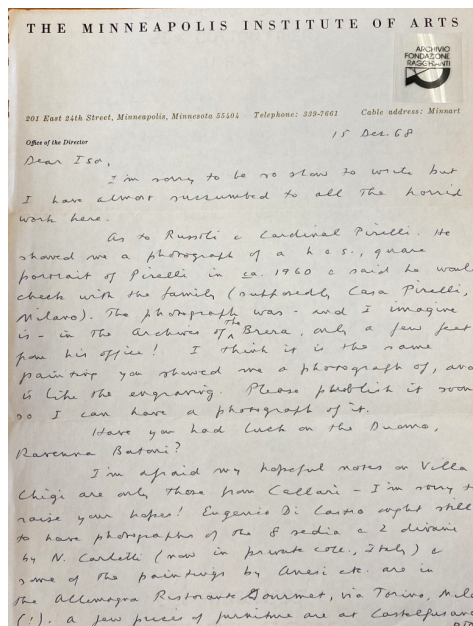 THE MINNEAPOLIS INSTITUTE OF ARTS
ARCHIVIO
FONDAZIONE
RAGGHIANTI
201 East 24th Street, Minneapolis, Minnesota 55404 Telephone: 339-7661 Cable address: Minnart
Office of the Director
15 Dec. 68
Dear Isa,
I'm sorry to be so slow to write but
I have almost succumbed to all the horrid
work here.
As to Russoli & Cardinal Pirelli. He
showed me a photograph of a h & s, quare
portrait of Pirelli in ca. 1960 & said he woul
check with the family (supposedly Casa Pirelli,
Milano). The photograph was - and I imagine
is - in the Archives of the Brera, only a few feet
from his office! I think it is the same
painting you showed me a photograph of, and
is like the engraving. Please publish it soon
so I can have a photograph of it.
Have you had luck on the Duomo,
Ravenna Batoni?
I'm afraid my hopeful notes on Villa
Chigi are only those from Callari - I'm sorry t
raise your hopes! Eugenio Di Castro ought still
to have photographs of the 8 sedia & 2 divani
by N. Carletti (now in private coll., Italy) &
some of the paintings by Anesi etc. are in
the Allemagna Ristorante Gourmet, via Torino, Mila
(!). a few pieces of furniture are at Castelfusano